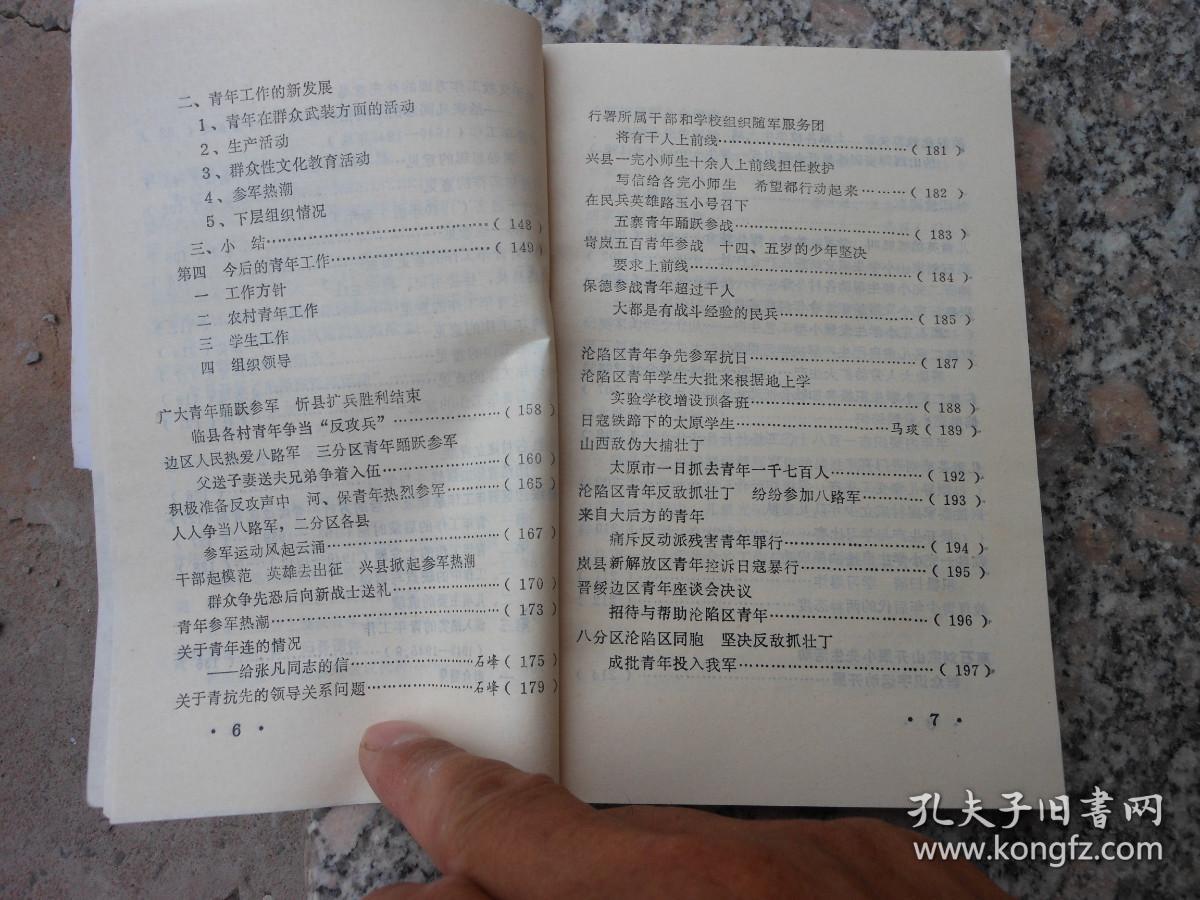 二、青年工作的新发展
1、青年在群众武装方面的活动
2、生产活动
3、群众性文化教育活动
4、参军热潮
5、下层组织情况
三、小 结…………………………………(148)
第四 今后的青年工作………………………(149)
一 工作方针
二 农村青年工作
三 学生工作
四 组织领导
广大青年踊跃参军 忻县扩兵胜利结束
临县各村青年争当“反攻兵”………………(158)
边区人民热爱八路军 三分区青年踊跃参军
父送子妻送夫兄弟争着入伍………………(160)
积极准备反攻声中 河、保青年热烈参军………(165)
人人争当八路军,二分区各县
参军运动风起云涌………………………(167)
干部起模范 英雄去出征 兴县掀起参军热潮
群众争先恐后向新战士送礼………………(170)
青年参军热潮………………………………(173)
关于青年连的情况
——给张凡同志的信………………石峰(175)
关于青抗先的领导关系问题……………石峰(179)
· 6 ·
行署所属干部和学校组织随军服务团
将有千人上前线…………………………(181)
兴县一完小师生十余人上前线担任救护
写信给各完小师生 希望都行动起来………(182)
在民兵英雄路玉小号召下
五寨青年踊跃参战………………………(183)
岢岚五百青年参战 十四、五岁的少年坚决
要求上前线………………………………(184)
保德参战青年超过千人
大都是有战斗经验的民兵………………(185)
沦陷区青年争先参军抗日……………………(187)
沦陷区青年学生大批来根据地上学
实验学校增设预备班……………………(188)
日寇铁蹄下的太原学生………………马琰(189)
山西敌伪大捕壮丁
太原市一日抓去青年一千七百人…………(192)
沦陷区青年反敌抓壮丁 纷纷参加八路军………(193)
来自大后方的青年
痛斥反动派残害青年罪行………………(194)
岚县新解放区青年控诉日寇暴行………………(195)
晋绥边区青年座谈会决议
招待与帮助沦陷区青年…………………(196)
八分区沦陷区同胞 坚决反敌抓壮丁
成批青年投入我军………………………(197)
· 7 ·
孔夫子旧书网
www.kongfz.com